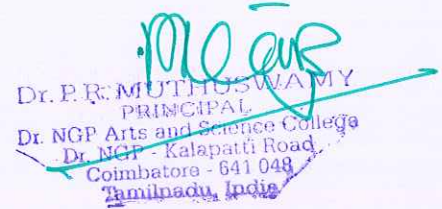 Dr. P. R. MUTHUSWAMY
PRINCIPAL
Dr. NGP Arts and Science College
Dr. NGP - Kalapatti Road
Coimbatore - 641 048
Tamilnadu, India